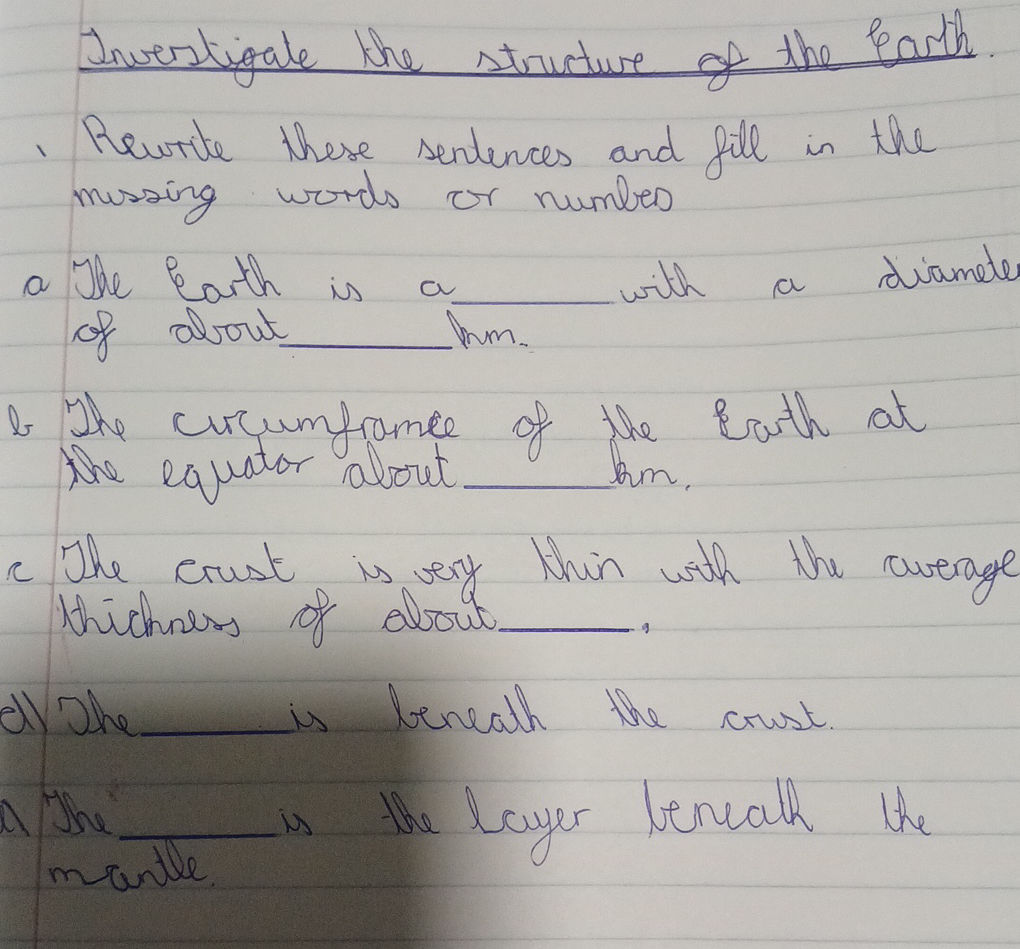 Investigate the structure of the Earth.
1 Rewrite these sentences and fill in the
missing words or numbes
a The Earth is a ______ with a diamete
of about ______ km.
b The circumframce of the Earth at
the equator about ______ km.
c The crust is very thin with the average
thickness of about ______.
d) The ______ is beneath the crust.
The ______ is the layer beneath the
mantle.